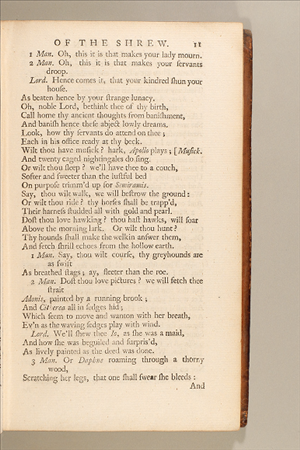 OF THE SHREW. 11
1 Man. Oh, this it is that makes your lady mourn.
2 Man. Oh, this it is that makes your ſervants
droop.
Lord. Hence comes it, that your kindred ſhun your
houſe.
As beaten hence by your ſtrange lunacy.
Oh, noble Lord, bethink thee of thy birth,
Call home thy ancient thoughts from baniſhment,
And baniſh hence theſe abject lowly dreams,
Look, how thy ſervants do attend on thee;
Each in his office ready at thy beck.
Wilt thou have muſick? hark, Apollo plays; [Muſick.
And twenty caged nightingales do ſing.
Or wilt thou ſleep? we'll have thee to a couch,
Softer and ſweeter than the luſtful bed
On purpoſe trimm'd up for Semiramis.
Say, thou wilt walk, we will beſtrow the ground:
Or wilt thou ride? thy horſes ſhall be trapp'd,
Their harneſs ſtudded all with gold and pearl.
Doſt thou love hawking? thou haſt hawks, will ſoar
Above the morning lark. Or wilt thou hunt?
Thy hounds ſhall make the welkin anſwer them,
And fetch ſhrill echoes from the hollow earth.
1 Man. Say, thou wilt courſe, thy greyhounds are
as ſwift
As breathed ſtags; ay, fleeter than the roe.
2 Man. Doſt thou love pictures? we will fetch thee
ſtrait
Adonis, painted by a running brook;
And Citherea all in ſedges hid;
Which ſeem to move and wanton with her breath,
Ev'n as the waving ſedges play with wind.
Lord. We'll ſhew thee Io, as ſhe was a maid,
And how ſhe was beguiled and ſurpris'd,
As lively painted as the deed was done.
3 Man. Or Daphne roaming through a thorny
wood,
Scratching her legs, that one ſhall ſwear ſhe bleeds:
And